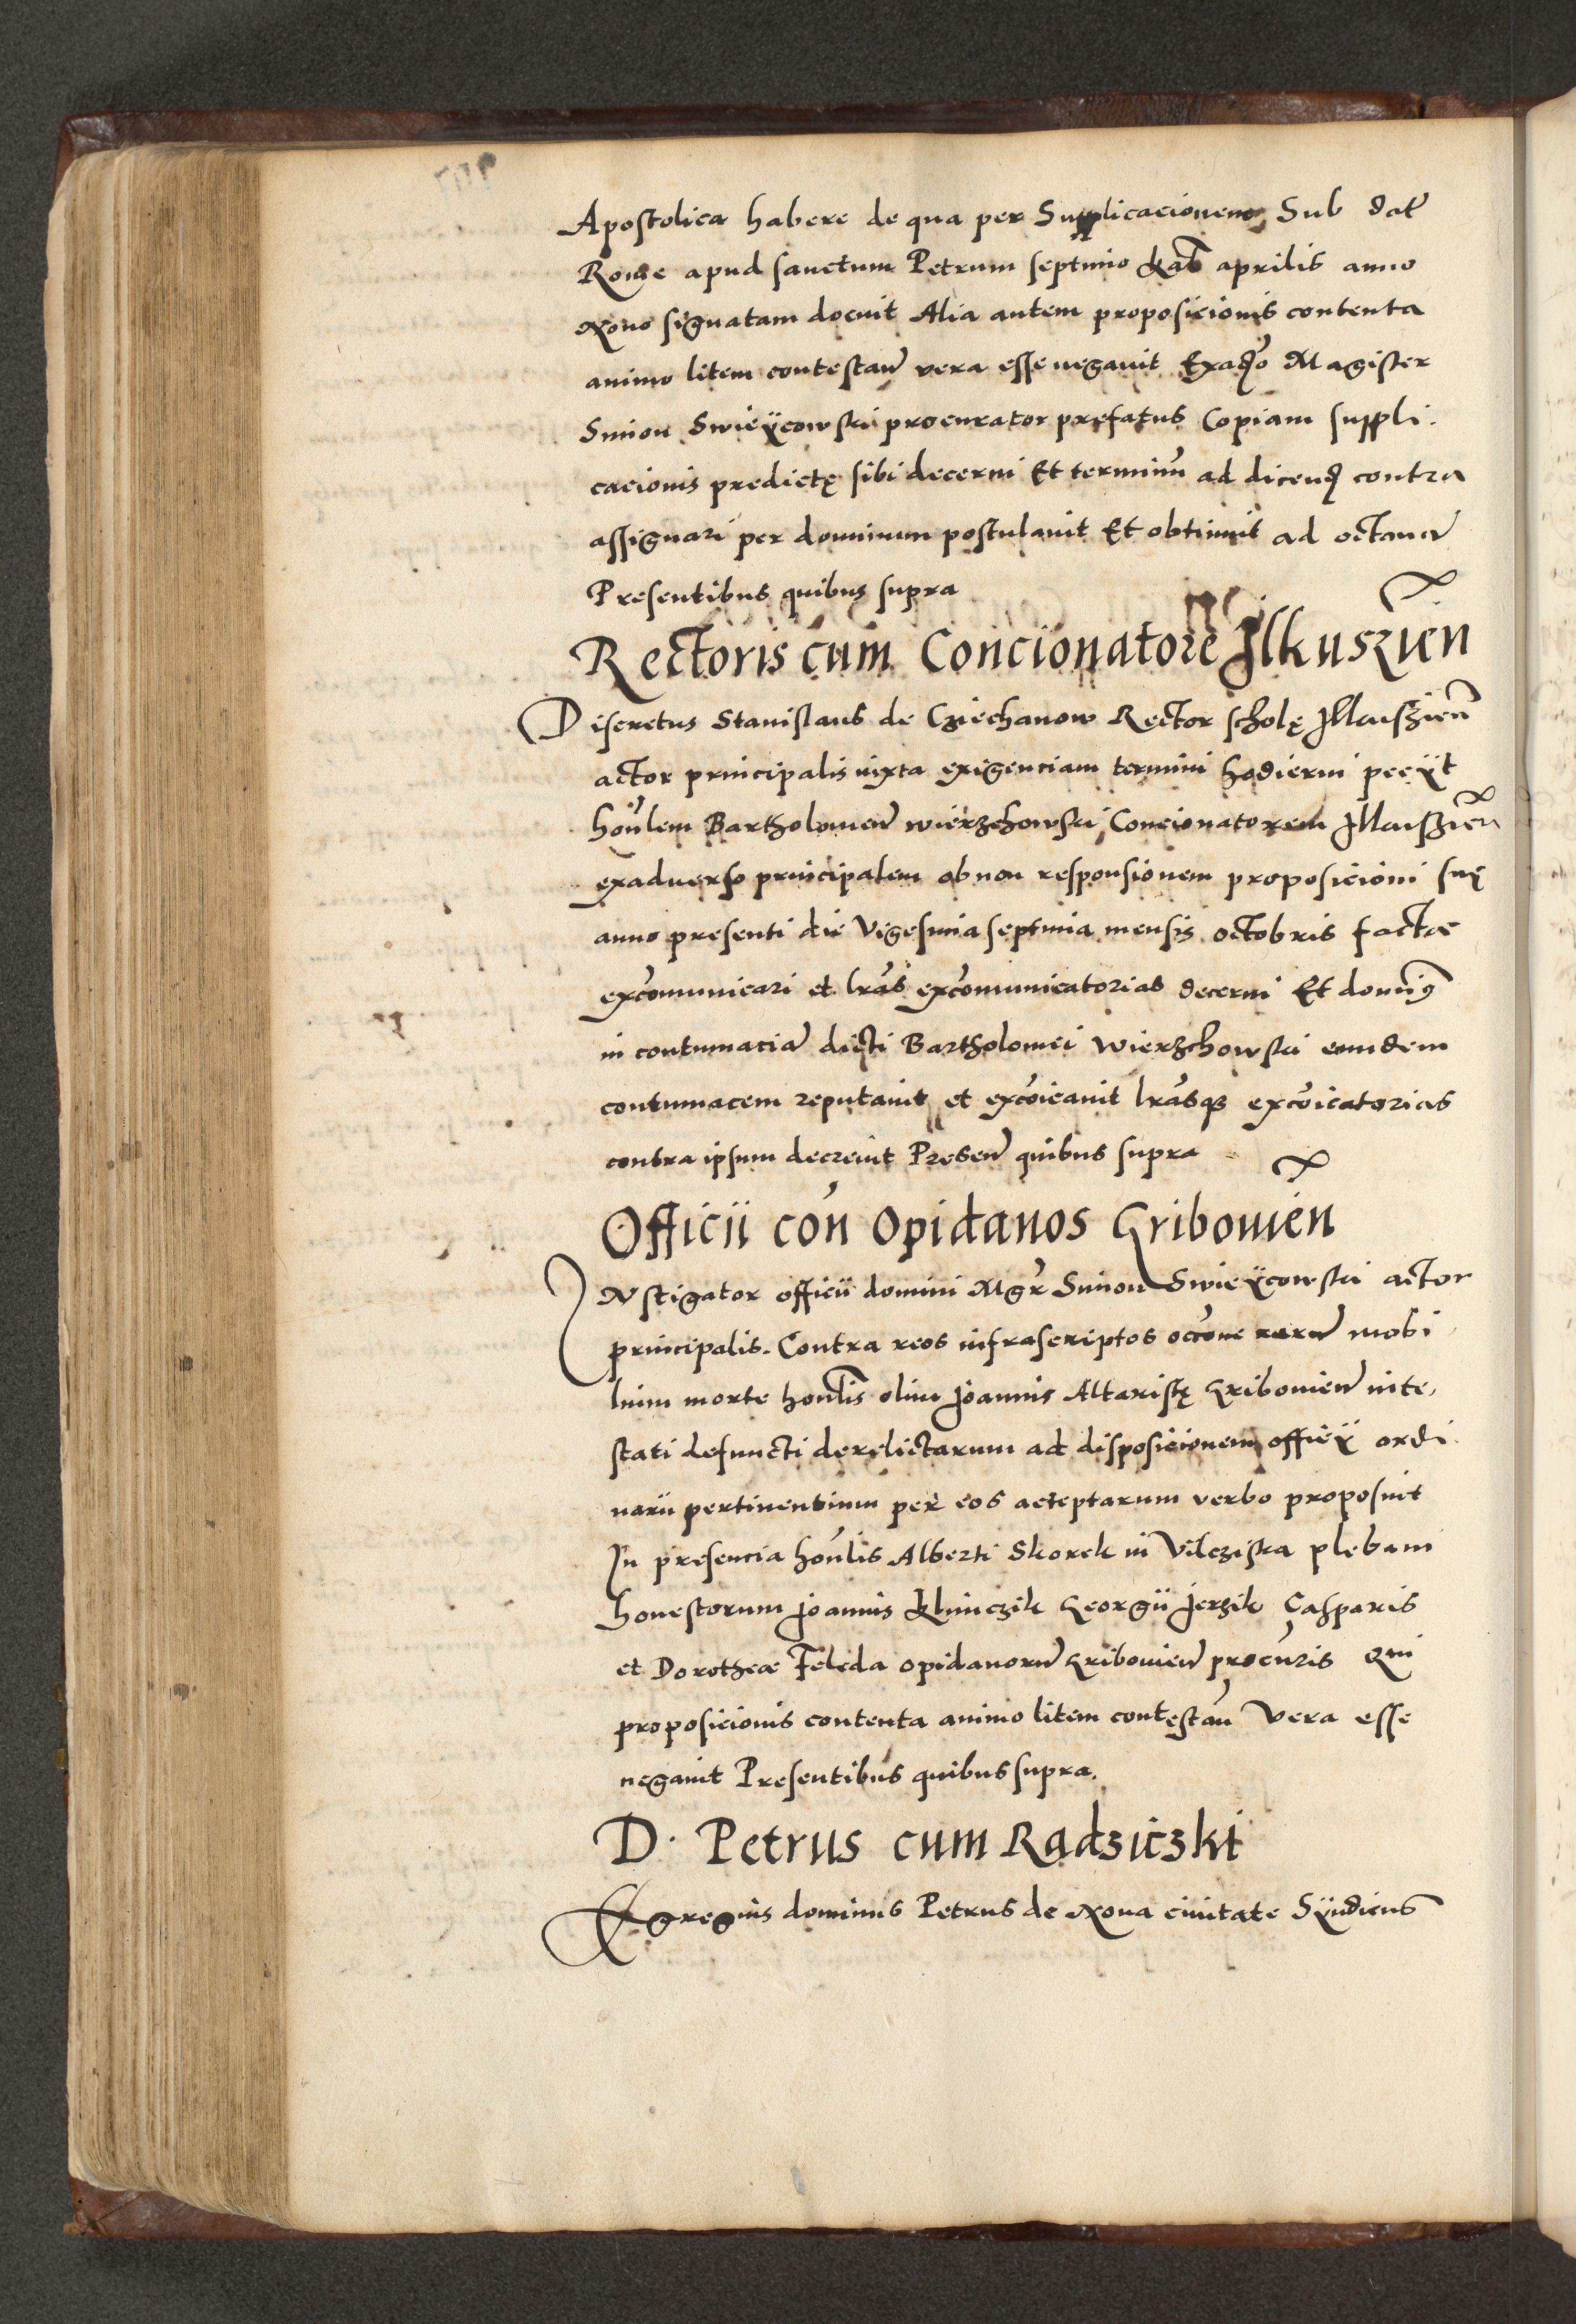 Apostolica habere de qua per Supplicacionem Sub dat̄
Rome apud sanctum Petrum septimo kal̄ aprilis anno
Nono signatam docuit Alia autem proposicionis contenta
animo litem contestan̄ vera esse negavit Exadv̄o Magister
Simon Swieÿcowski procurator prefatus Copiam suppli-
cacionis predictę sibi decerni Et terminū ad dicend̄ contra
assignari per dominum postulavit Et obtinuit ad octavā
Presentibus quibus supra
Rectoris cum Concionatore Ilkuszien̄
Discretus Stanislaus de Cziechanow Rector scholę Ilkuszien̄
actor principalis iuxta exigenciam termini hodierni peeÿt
hon̄lem Bartholomeū wierzchowski Concionatorem Ilkuszien̄
exadverso principalem ob non responsionem proposicioni suę
anno presenti die Vigesima septima mensis octobris factæ
exc̄omunicari et lr̄as exc̄omunicatorias decerni Et domin9
in contumaciā dicti Bartholomei wierzchowski eundem
contumacem reputavit et exc̄oicavit lr̄asq3 exc̄oicatorias
contra ipsum decrevit Presen̄ quibus supra
Officii con̄ Opidanos Gribovien̄
INstigator officii domini Mgr̄ Simon Swieÿcowski actor
principalis. Contra reos infrascriptos occ̄one rerū mobi-
lium morte hon̄lis olim Joannis Altaristę Gribovien̄ inte-
stati defuncti derelictarum ad disposicionem officÿ ordi-
narii pertinentium per eos acceptarum verbo proposuit
In presencia hon̄lis Alberti Skorek in Vilcziska plebani
honestorum Joannis Klimczik Georgii Jerzik Casparis
et Dorotheæ Feleda opidanorū Gribovien̄ procūris Qui
proposicionis contenta animo litem contestan̄ Vera esse
negavit Presentibus quibus supra.
D. Petrus cum Radziczki
Egregius dominus Petrus de Nova civitate Sÿndicus